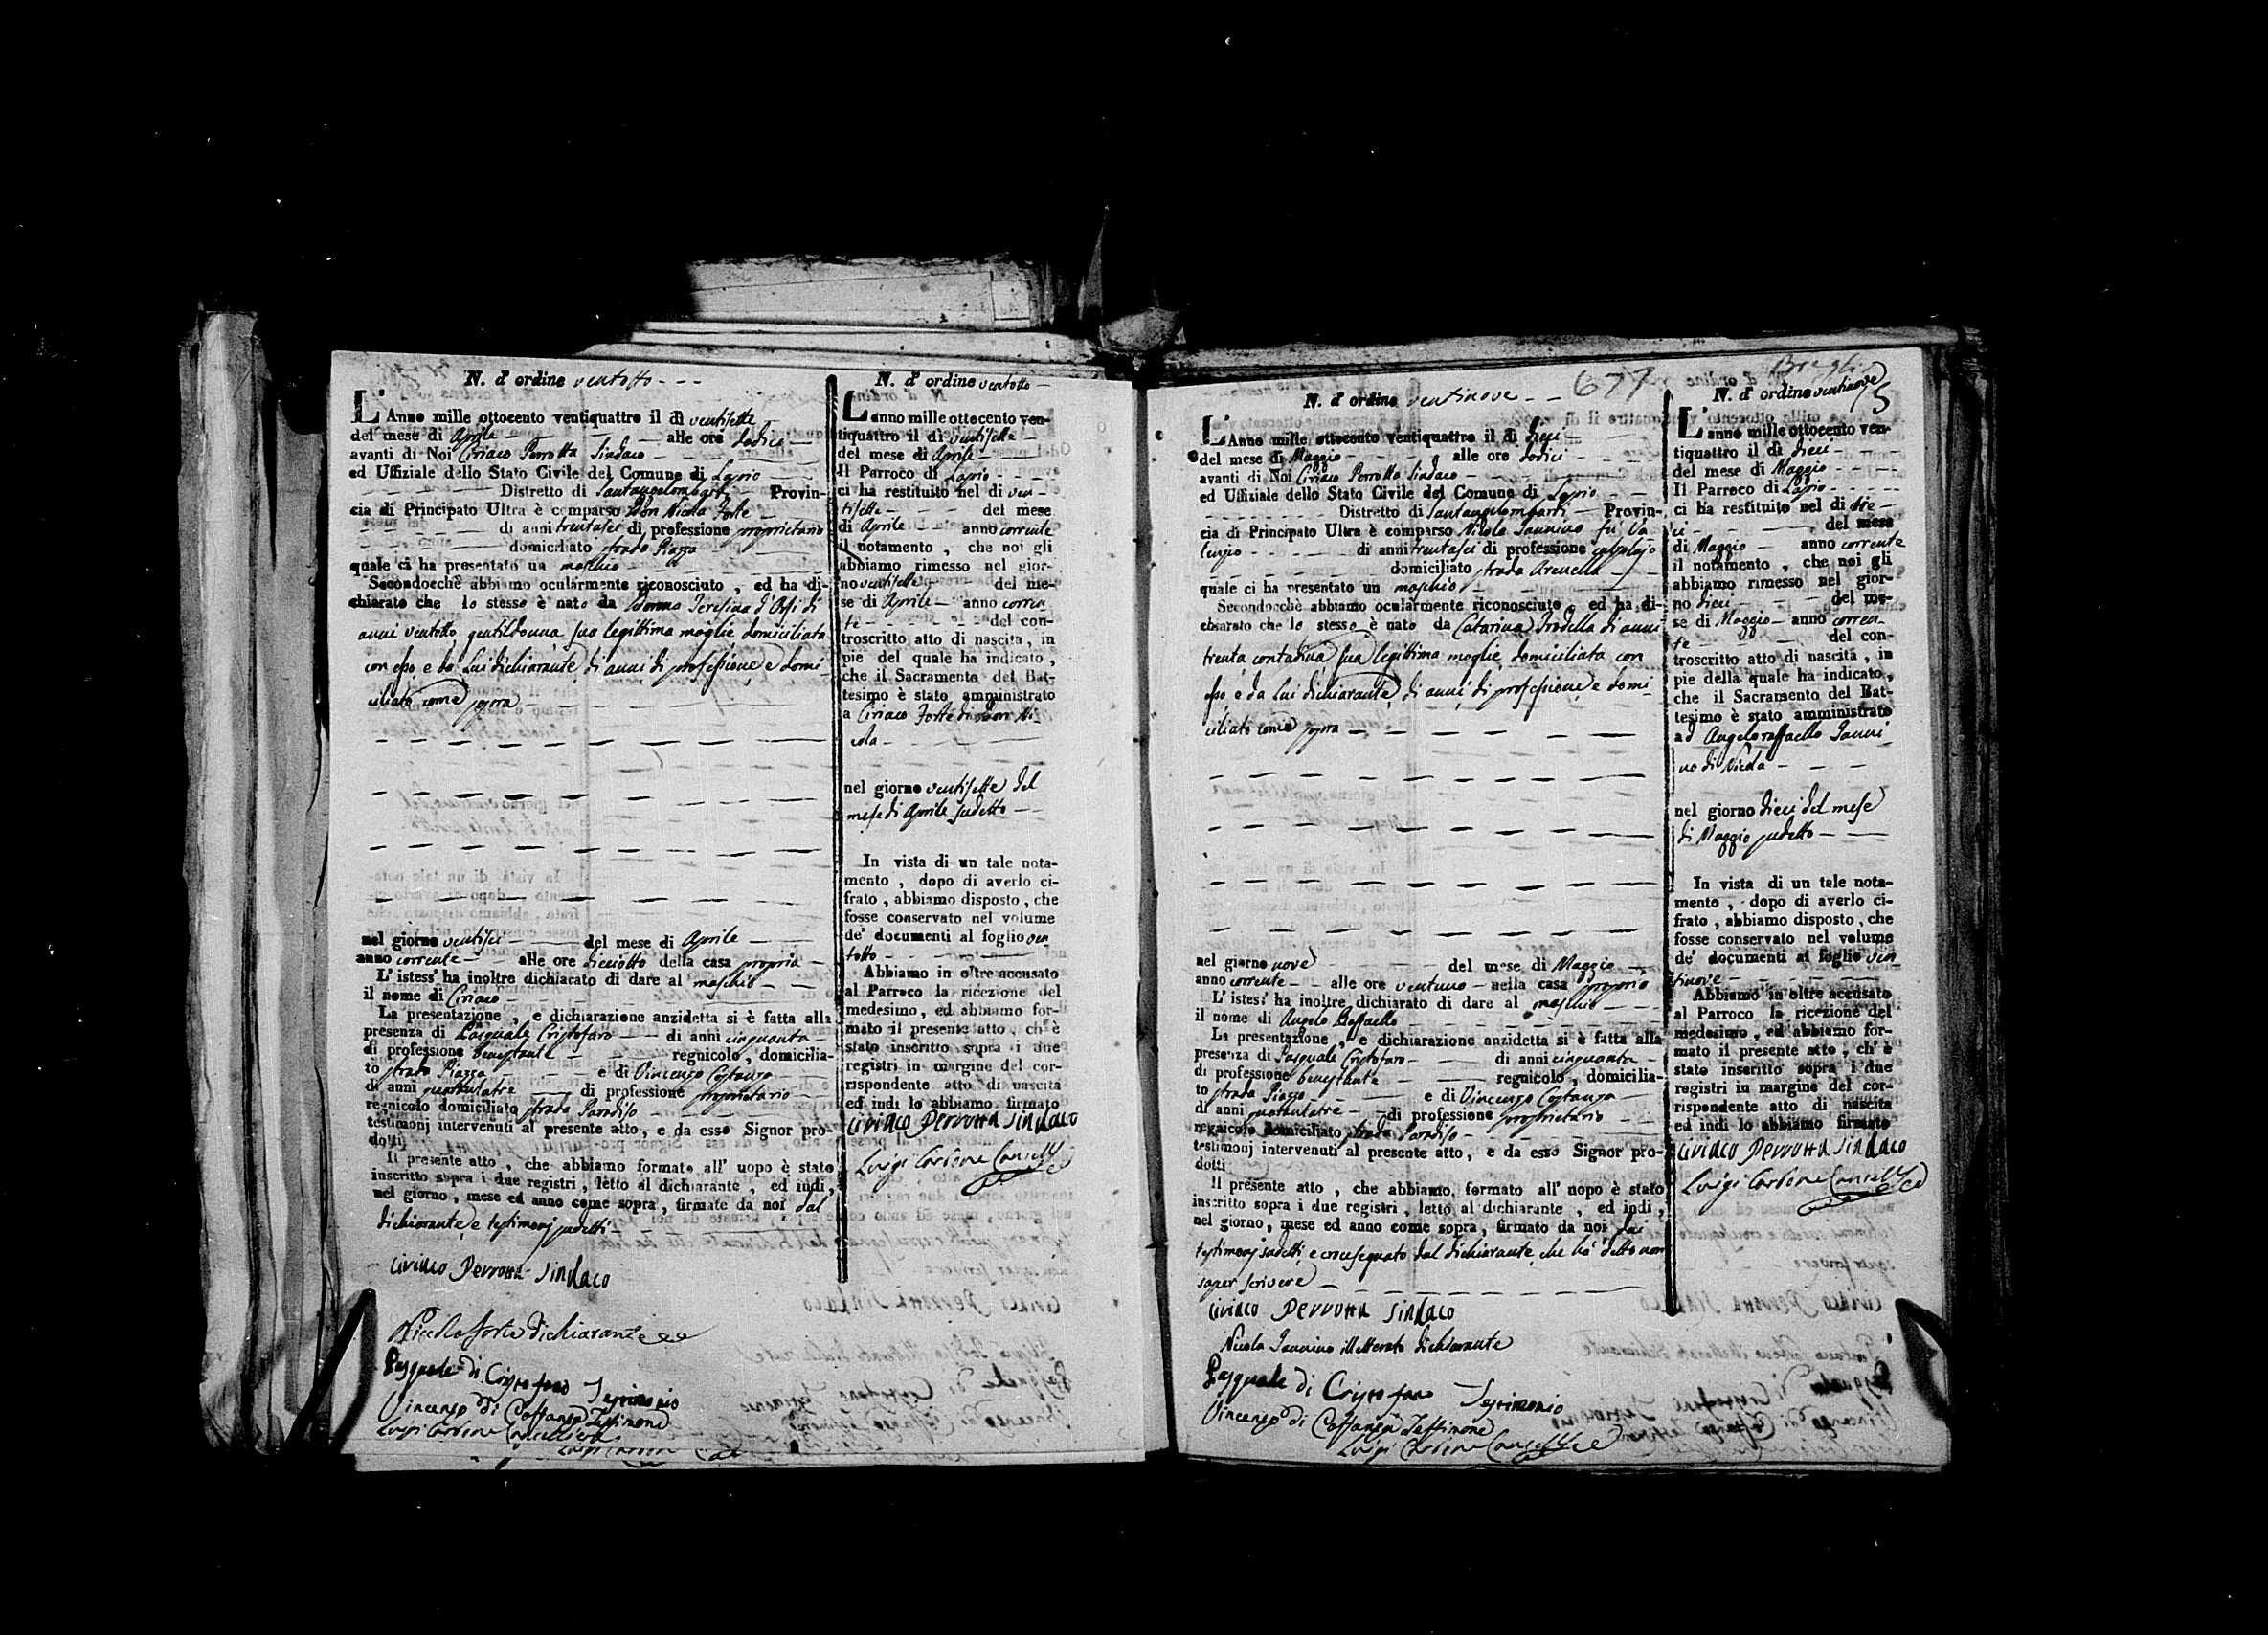 N. d' ordine ventotto
L' Anno mille ottocento ventiquattro il dì ventisette
del mese di Aprile alle ore dodici
avanti di Noi Ciriaco Perrotta Sindaco
ed Uffiziale dello Stato Civile del Comune di Lapio
Distretto di Santangelombardi Provin-
cia di Principato Ultra è comparso Don Nicola Forte
di anni trentasei di professione proprietario
domiciliato strada Piazza
quale ci ha presentato un maschio
Secondocchè abbiamo ocularmente riconosciuto, ed ha di-
chiarato che lo stesso è nato da Donna Teresina d'
anni ventotto gentildonna sua legittima moglie domiciliata
con esso, e da lui dichiarante di anni di professione e domi
ciliato come sopra
nel giorno ventisei del mese di Aprile
anno corrente alle ore dieciotto della casa propria
L' istess' ha inoltre dichiarato di dare al maschio
il nome di Ciriaco
La presentazione, e dichiarazione anzidetta si è fatta alla
presenza di Pasquale Cristofaro di anni cinquanta
di professione benestante regnicolo, domicilia-
to strada Piazza e di Vincenzo Costanza
di anni quarantatre di professione proprietario
regnicolo domiciliato strada Paradiso
testimonj intervenuti al presente atto, e da esso Signor pro-
dotti
Il presente atto, che abbiamo formato all' uopo è stato
inscritto sopra i due registri, letto al dichiarante, ed indi,
nel giorno, mese ed anno come sopra, firmato da noi dal
dichiarante, e testimonj sudetti
Ciriaco Perrotta Sindaco
Niccola Forte dichiarante
Pasquale di Cristofano Testimonio
Vincenzo di Costanza Testimone
Luigi Carbone Cancelliere
N. d' ordine ventotto
L' anno mille ottocento ven-
tiquattro il dì ventisette
del mese di Aprile
Il Parroco di Lapio
ci ha restituito nel dì ven-
tisette del mese
di Aprile anno corrente
il notamento, che noi gli
abbiamo rimesso nel gior-
no ventisette del me-
se di Aprile anno corren
te del con-
troscritto atto di nascita, in
pie del quale ha indicato,
che il Sacramento del Bat-
tesimo è stato amministrato
a Ciriaco Forte di Don Ni
cola
nel giorno ventisette del
mese di Aprile sudetto
In vista di un tale nota-
mento, dopo di averlo ci-
frato, abbiamo disposto, che
fosse conservato nel volume
de' documenti al foglio ven
totto
Abbiamo in oltre accusato
al Parroco la ricezione del
medesimo, ed abbiamo for-
mato il presente atto, ch' è
stato inscritto sopra i due
registri in margine del cor-
rispondente atto di nascita
ed indi lo abbiamo firmato
Ciriaco Perrotta Sindaco
Luigi Carbone
677
N. d' ordine ventinove
L' Anno mille ottocento ventiquattro il dì dieci
del mese di Maggio alle ore dodici
avanti di Noi Ciriaco Perrotta Sindaco
ed Uffiziale dello Stato Civile del Comune di Lapio
Distretto di Santangelombardi Provin-
cia di Principato Ultra è comparso Nicola Iannino fu
di anni trentasei di professione calzolajo
domiciliato strada Arenella
quale ci ha presentato un maschio
Secondocchè abbiamo ocularmente riconosciuto, ed ha di-
chiarato che lo stesso è nato da Catarina di anni
trenta contadina sua legittima moglie domiciliata con
esso, e da lui dichiarante, di anni, di professione e domi
ciliato come sopra
nel giorno nove del mese di Maggio
anno corrente alle ore ventuno nella casa propria
L' istess' ha inoltre dichiarato di dare al maschio
il nome di Angelo Raffaello
La presentazione, e dichiarazione anzidetta si è fatta alla
presenza di Pasquale Cristofaro di anni cinquanta
di professione benestante regnicolo, domicilia-
to strada Piazza e di Vincenzo Costanza
di anni quarantatre di professione proprietario
regnicolo domiciliato strada Paradiso
testimonj intervenuti al presente atto, e da esso Signor pro-
dotti
Il presente atto, che abbiamo formato all' uopo è stato
inscritto sopra i due registri, letto al dichiarante, ed indi,
nel giorno, mese ed anno come sopra, firmato da noi dai
testimonj sudetti, e crocesegnato dal dichiarante, che ha detto non
saper scrivere
Ciriaco Perrotta Sindaco
Nicola Iannino illetterato dichiarante
Pasquale di Cristofano Testimonio
Vincenzo di Costanza Testimone
Luigi Carbone
N. d' ordine ventinove
L' anno mille ottocento ven-
tiquattro il dì dieci
del mese di Maggio
Il Parroco di Lapio
ci ha restituito nel dì die-
ci del mese
di Maggio anno corrente
il notamento, che noi gli
abbiamo rimesso nel gior-
no dieci del me-
se di Maggio anno corren-
te del con-
troscritto atto di nascita, in
pie della quale ha indicato,
che il Sacramento del Bat-
tesimo è stato amministrato
ad Angeloraffaello Ianni
no di Nicola
nel giorno dieci del mese
di Maggio sudetto
In vista di un tale nota-
mento, dopo di averlo ci-
frato, abbiamo disposto, che
fosse conservato nel volume
de' documenti al foglio ven
tinove
Abbiamo in oltre accusato
al Parroco la ricezione del
medesimo, ed abbiamo for-
mato il presente atto, ch' è
stato inscritto sopra i due
registri in margine del cor-
rispondente atto di nascita
ed indi lo abbiamo firmato
Ciriaco Perrotta Sindaco
Luigi Carbone